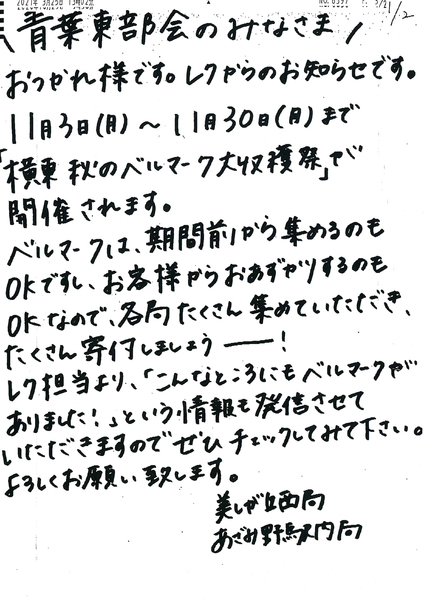 青葉東部会のみなさま
おつかれ様です。レクからのお知らせです。
11月3日(月)～11月30日(月)まで
「横東 秋のベルマーク大収穫祭」が
開催されます。
ベルマークは、期間前から集めるのも
OKですし、お客様からおあずかりするのも
OKなので、各局たくさん集めていただき、
たくさん寄付しましょうーー！
レク担当より、「こんなところにもベルマークが
ありました！」という情報も発信させて
いただきますのでぜひチェックしてみて下さい。
よろしくお願い致します。
美しが丘西局
あざみ野駅内局